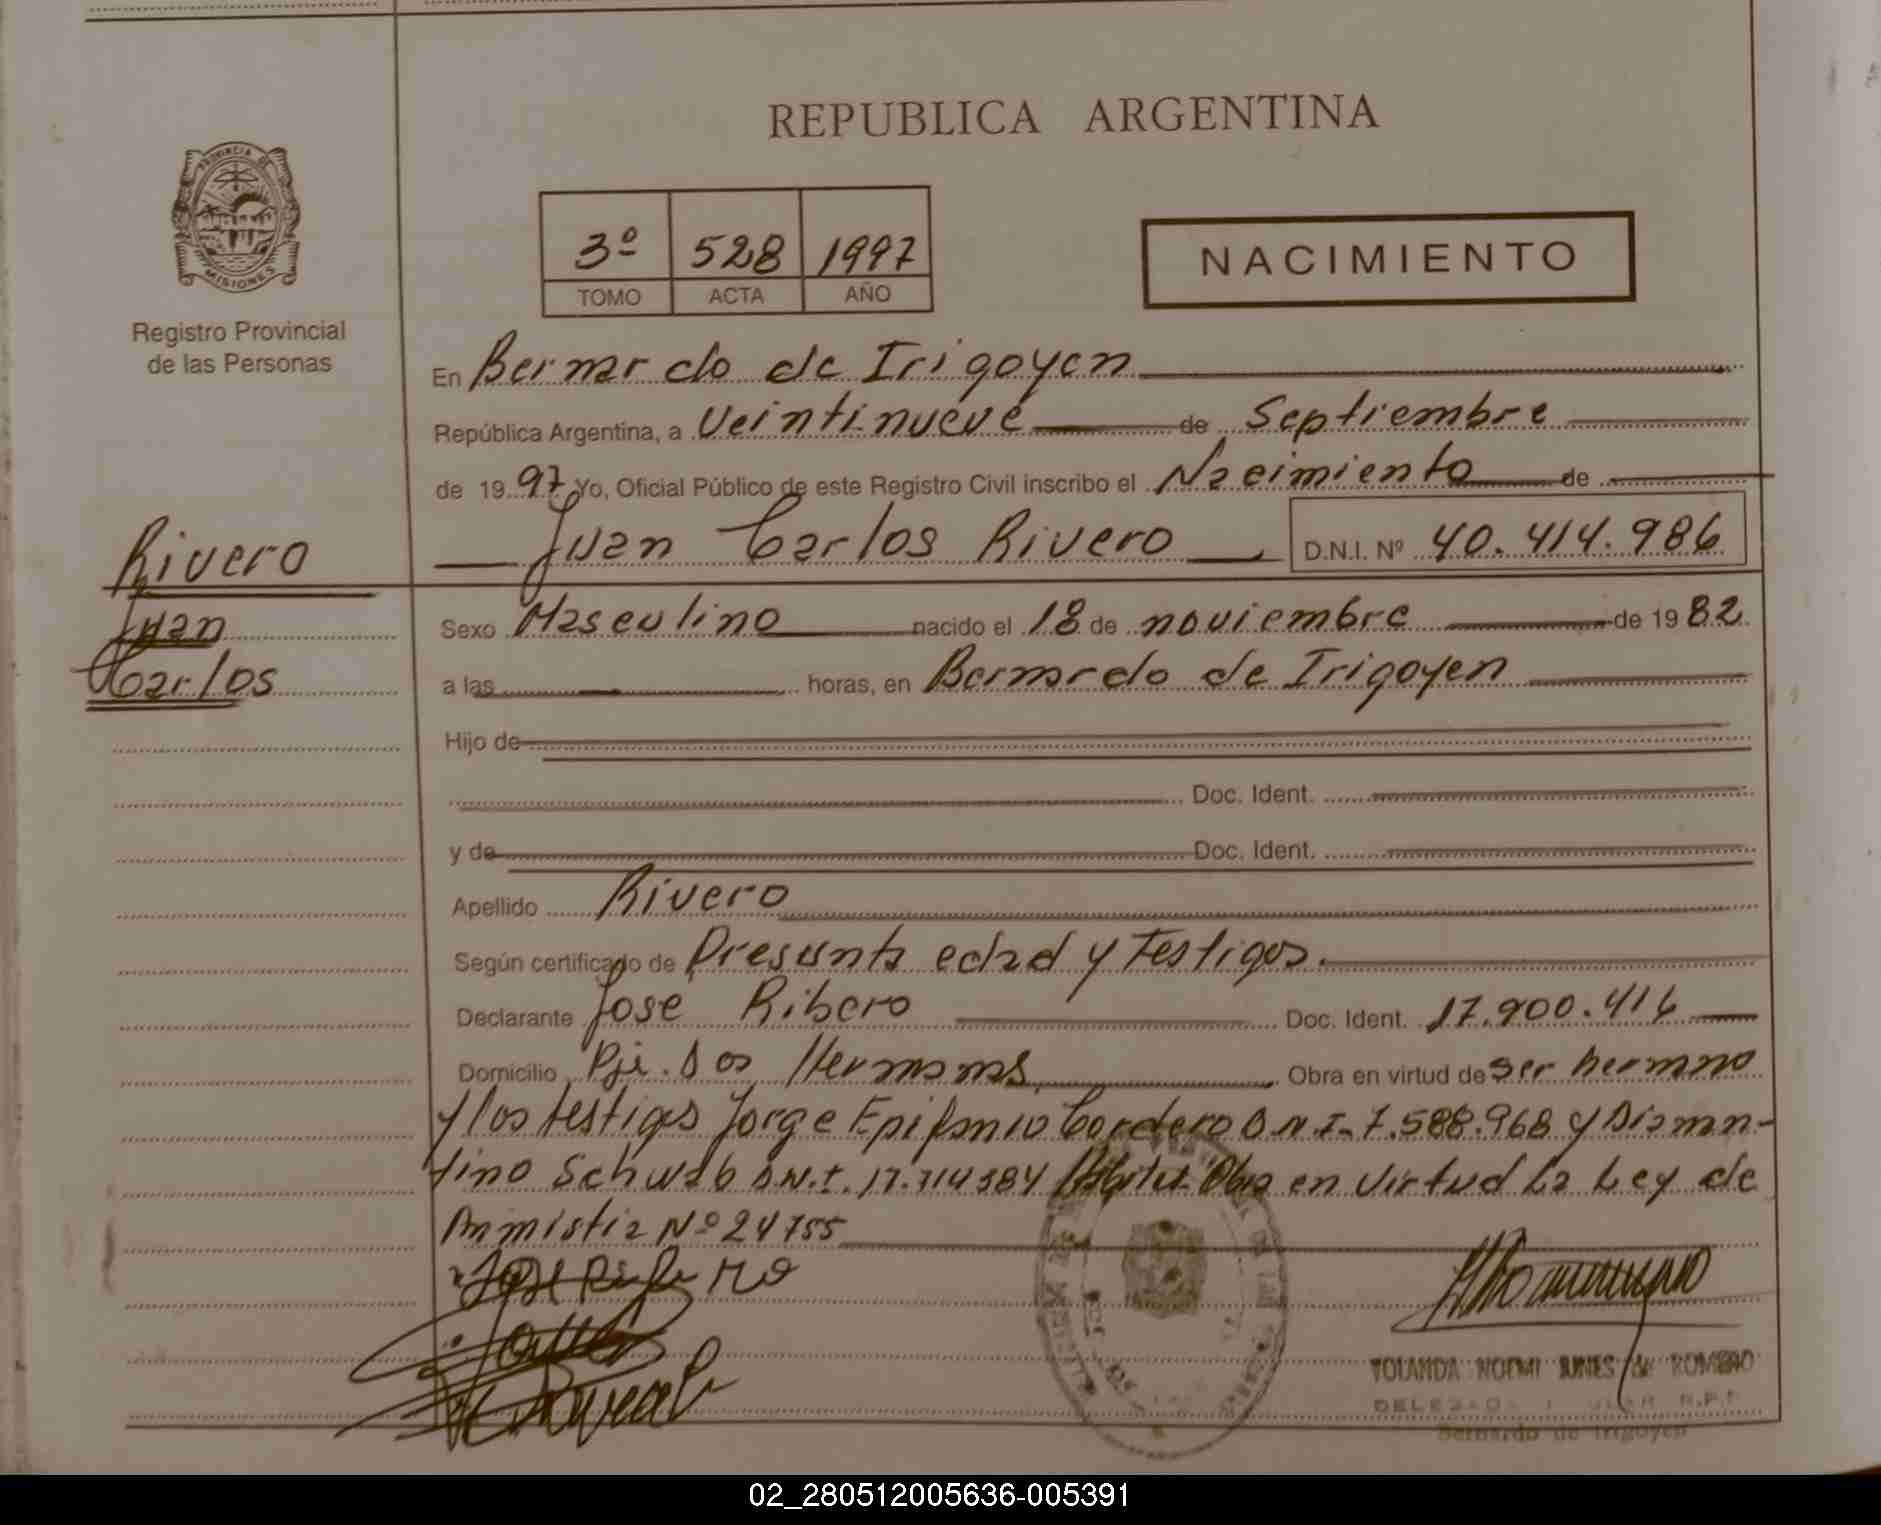 REPUBLICA ARGENTINA
PROVINCIA DE
MISIONES
Registro Provincial
de las Personas
3º 528 1997
TOMO ACTA AÑO
NACIMIENTO
En Bernardo de Irigoyen
República Argentina, a Veintinueve de Septiembre
de 1997 Yo, Oficial Público de este Registro Civil inscribo el Nacimiento de
Juan Carlos Rivero D.N.I. Nº 40.414.986
Rivero
Juan
Carlos
Sexo Masculino nacido el 18 de noviembre de 1982
a las horas, en Bernardo de Irigoyen
Hijo de
Doc. Ident.
y de Doc. Ident.
Apellido Rivero
Según certificado de Presunta edad y Testigos.
Declarante Jose Ribero Doc. Ident. 17.900.416
Domicilio Pje. Dos Hermanas Obra en virtud de ser hermano
y los testigos Jorge Epifanio Cordero D.N.I. 7.588.968 y Diaman-
tino Schwab D.N.I. 17.714384 Obra en Virtud La Ley de
Amnistia Nº 24755
YOLANDA NOEMI de ROMERO
Bernardo de Irigoyen
02_280512005636-005391